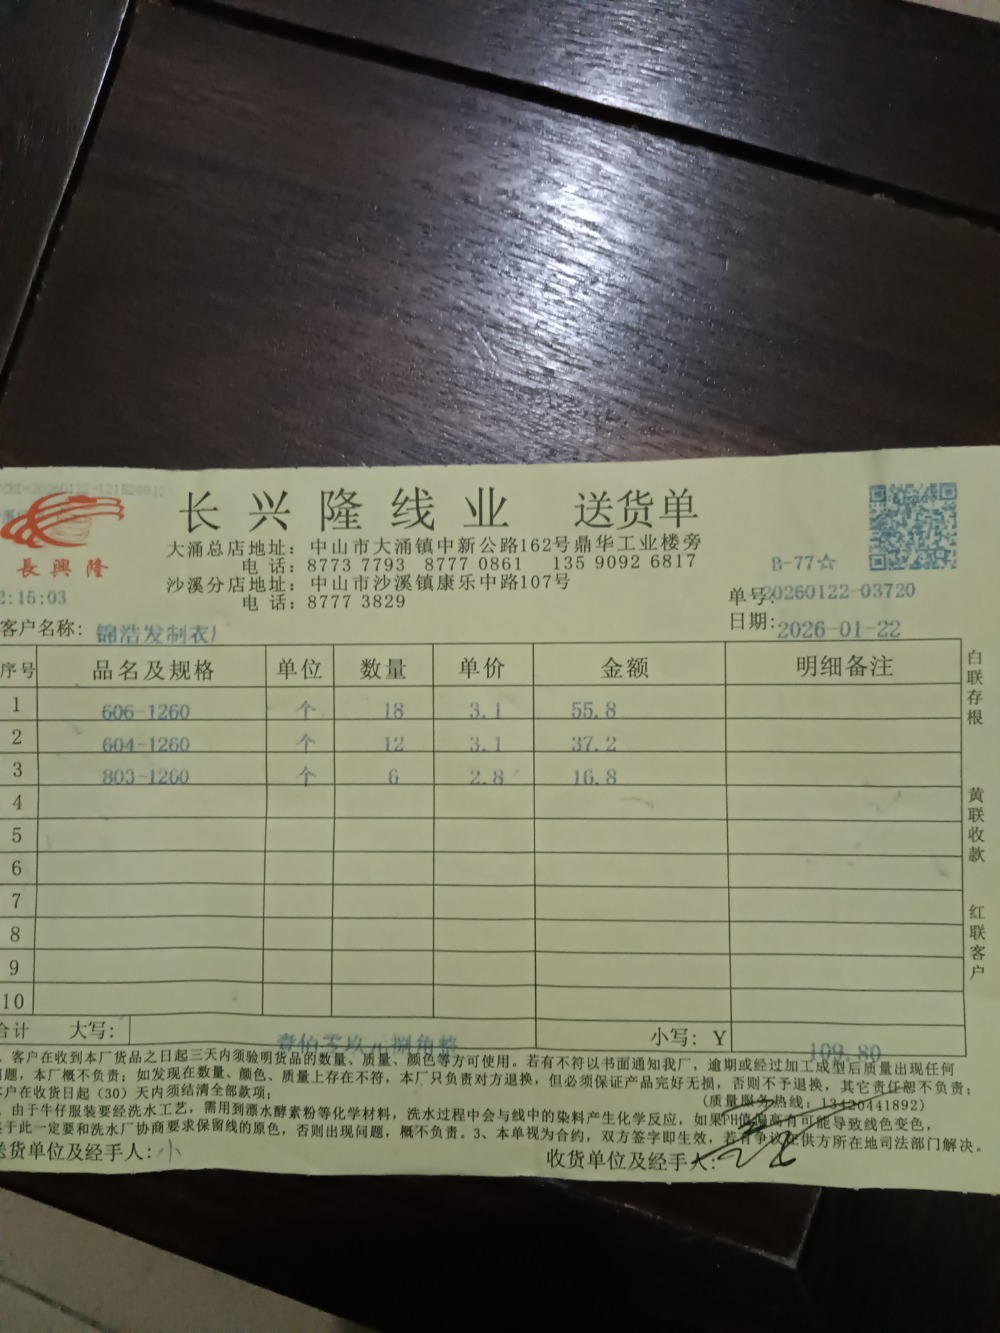 长兴隆线业 送货单
大涌总店地址: 中山市大涌镇中新公路162号鼎华工业楼旁
电 话: 8773 7793 8777 0861 135 9092 6817
沙溪分店地址: 中山市沙溪镇康乐中路107号
电 话: 8777 3829
長興隆
2:15:03
B-77☆
单号:20260122-03720
日期:2026-01-22
客户名称: 锦浩发制衣厂
序号 品名及规格 单位 数量 单价 金额 明细备注
1 606-1260 个 18 3.1 55.8
2 604-1260 个 12 3.1 37.2
3 803-1260 个 6 2.8 16.8
4
5
6
7
8
9
10
合计 大写: 壹佰零玖元捌角整 小写: Y 109.80
白联存根
黄联收款
红联客户
、客户在收到本厂货品之日起三天内须验明货品的数量、质量、颜色等方可使用。若有不符以书面通知我厂，逾期或经过加工成型后质量出现任何
问题，本厂概不负责；如发现在数量、颜色、质量上存在不符，本厂只负责对方退换，但必须保证产品完好无损，否则不予退换，其它责任概不负责；
客户在收货日起（30）天内须结清全部款项；
(质量服务热线: 13420441892)
、由于牛仔服装要经洗水工艺，需用到漂水酵素粉等化学材料，洗水过程中会与线中的染料产生化学反应，如果PH值偏高有可能导致线色变色，
于此一定要和洗水厂协商要求保留线的原色，否则出现问题，概不负责。3、本单视为合约，双方签字即生效，若有争议在供方所在地司法部门解决。
送货单位及经手人:小
收货单位及经手人: